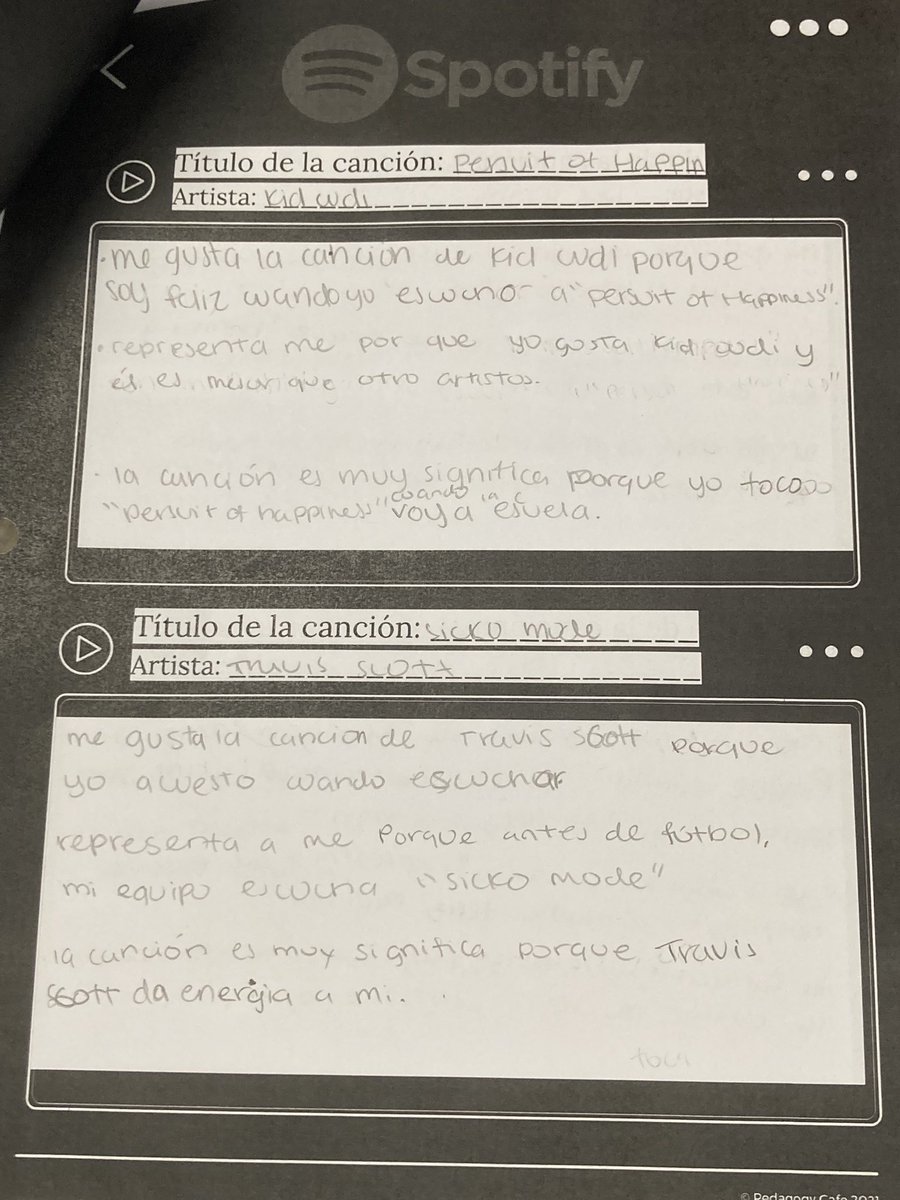 Spotify
Título de la canción: Persuit of Happin
Artista: Kid cudi
· me gusta la canción de Kid cudi porque
soy feliz cuando yo escucho a "persuit of Happiness".
· representa me por que yo gusta Kid cudi y
él es mejor que otro artistas.
· la canción es muy significa porque yo toco
cuando la c
"persuit of happiness" voy a esuela.
Título de la canción: sicko mode
Artista: Travis scott
me gusta la cancion de Travis scott porque
yo acuesto cuando escuchar
representa a me Porque antes de fútbol,
mi equipo escucha "sicko mode"
la canción es muy significa porque Travis
scott da energia a mi.
toca
© Pedagogy Cafe 2021